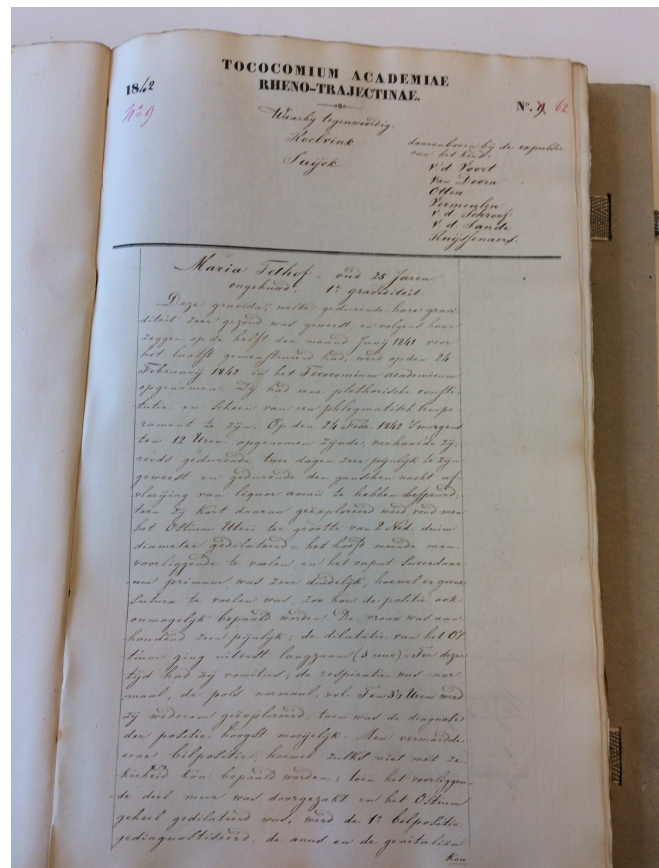 TOCOCOMIUM ACADEMIAE
RHENO-TRAJECTINAE.
1842
No 9
No. 9 62
Waarby tegenwoordig.
Roelvink
Suijck
daarenboven bij de expulsie
van het kind:
v. d. Voort
van Doorn
Otten
Vermeulen
v. d.
v. d. Sande
Kuijstenaers.
Maria Tethof, oud 25 Jaren.
ongehuwd. 1e graviditeit.
Deze gravida, welke gedurende hare gravi-
diteit zeer gezond was geweest, en volgens haar
zeggen op de helft der maand Junij 1841 voor
het laatst gemenstrueerd had, werd op den 24
February 1842 in het Tococomium academicum
opgenomen. Zij had eene plethorische consti-
tutie en scheen van een phlegmatisch tempe-
rament te zijn. Op den 24 Feb. 1842 's morgens
ten 12 Uren opgenomen zijnde, verhaalde zij
reeds gedurende twee dagen zeer pijnlijk te zijn
geweest en gedurende den ganschen nacht af-
vloeijing van liquor amnii te hebben bespeurd;
toen zij kort daarna geëxploreerd werd, vond men
het Ostium Uteri ter grootte van 2 Ned. duim
diameter gedilateerd, het hoofd meende men
voorliggende te voelen, en het caput succedane-
um primum was zeer duidelijk, hoewel er geene
sutura te voelen was, zoo kon de positie ook
onmogelijk bepaald worden. De vrouw was aan-
houdend zeer pijnlijk; de dilatatie van het Os-
tium ging uiterst langzaam (3 uur). Ter dezer
tijd had zij vomitus; de respiratie was nor-
maal, de pols normaal, vol. Ten 3½ Uren werd
zij wederom geëxploreerd, toen was de diagnosis
der positie hoogst moeijelijk. Men vermoedde
eene bilpositie, hoewel zulks niet met ze-
kerheid kon bepaald worden; toen het voorliggen-
de deel meer was doorgezakt en het Ostium
geheel gedilateerd was, werd de 1e bilpositie
gediagnostiseerd; de anus en de genitaliën
kon